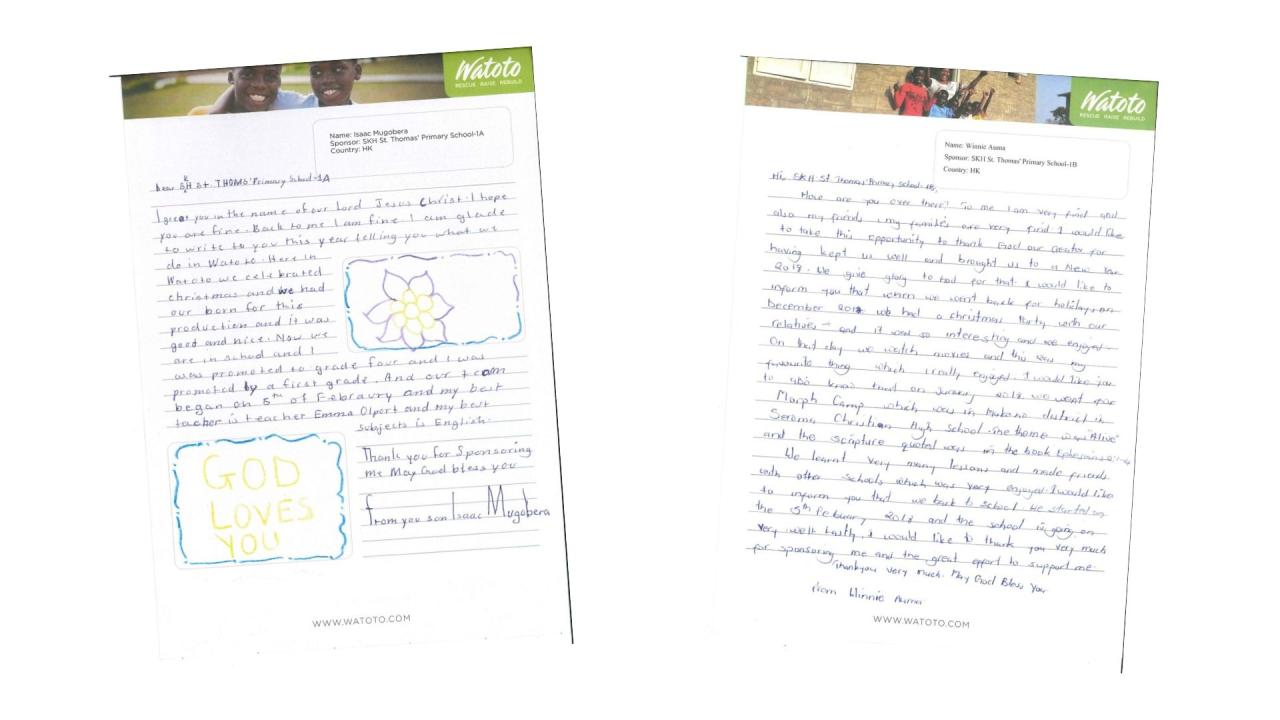 Watoto
RESCUE RAISE REBUILD
Name: Isaac Mugobera
Sponsor: SKH St. Thomas' Primary School-1A
Country: HK
Dear SKH St. THOMO' Primary School-1A
I great you in the name of our Lord Jesus Christ. I hope
you are fine. Back to me I am fine I am glade
to write to you this year telling you what we
do in Watoto. Here in
Watoto we celebrated
christmas and we had
our born for this
production and it was
good and nice. Now we
are in school and I
was promoted to grade four and I was
promoted by a first grade. And our team
began on 5th of Febraury and my best
teacher is teacher Emma Olport and my best
subjects is English.
GOD
LOVES
YOU
Thank you for Sponsoring
me May God bless you
From you son Isaac Mugobera
WWW.WATOTO.COM
Watoto
RESCUE RAISE REBUILD
Name: Winnie Auma
Sponsor: SKH St. Thomas' Primary School-1B
Country: HK
Hi, SKH St Thomas' Primary School-1B,
How are you over there? To me I am very find and
also my friends, my families are very find I would like
to take this opportunity to thank God our Creator for
having kept us well and brought us to a New Year
2018. We give glory to God for that. I would like to
inform you that when we went back for holidays on
December we had a christmas Party with our
relatives and it was so interesting and we enjoyed.
On that day we watch movies and this was my
favourite thing which I really enjoyed. I would like you
to also know that on January 2018 we went for
Morph Camp which was in Mukono district in
Seroma Christian High School. The theme was "Alive"
and the scripture quoted was in the book Ephesians
We learnt very many lessons and made friends
with other schools which was very enjoyed. I would like
to inform you that we back to school. We started on
the 5th Febuary 2018 and the school is going on
very well. Lastly, I would like to thank you very much
for sponsoring me and the great effort to support me.
Thankyou very much. May God Bless You
From Winnie Auma
WWW.WATOTO.COM